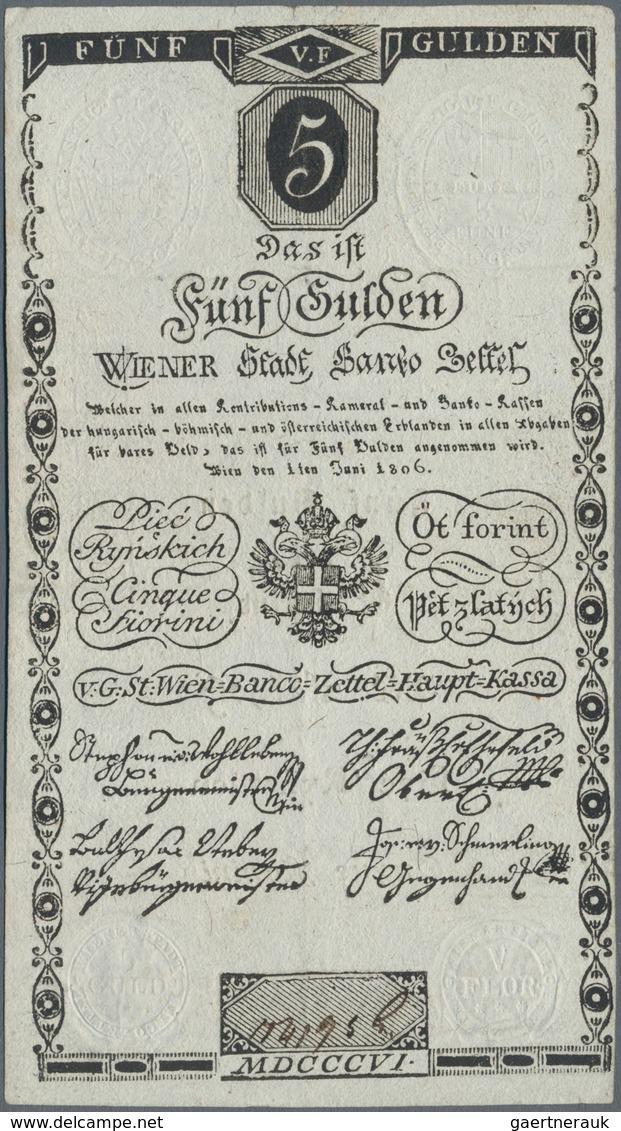 FÜNF V.F GULDEN
5
Das ist
Fünf Gulden
WIENER Stadt Banko Zettel
Welcher in allen Kontributions - Kameral - und Banko - Kassen
der hungarisch - böhmisch - und österreichischen Erblanden in allen Abgaben
für bares Geld, das ist für Fünf Gulden angenommen wird.
Wien den 1ten Juni 1806.
Pięć
Ryńskich
Cinque
Fiorini
Öt forint
Pět zlatých
V:G:St:Wien=Banco=Zettel=Haupt=Kassa
Stephan v: Wohlleben
Bürgermeister
Ober
Vizebürgermeister
Jos: v: Schmerling
Gegenhand
GULD
V
FLOR
MDCCCVI.
gaertnerauk
gaertnerauk